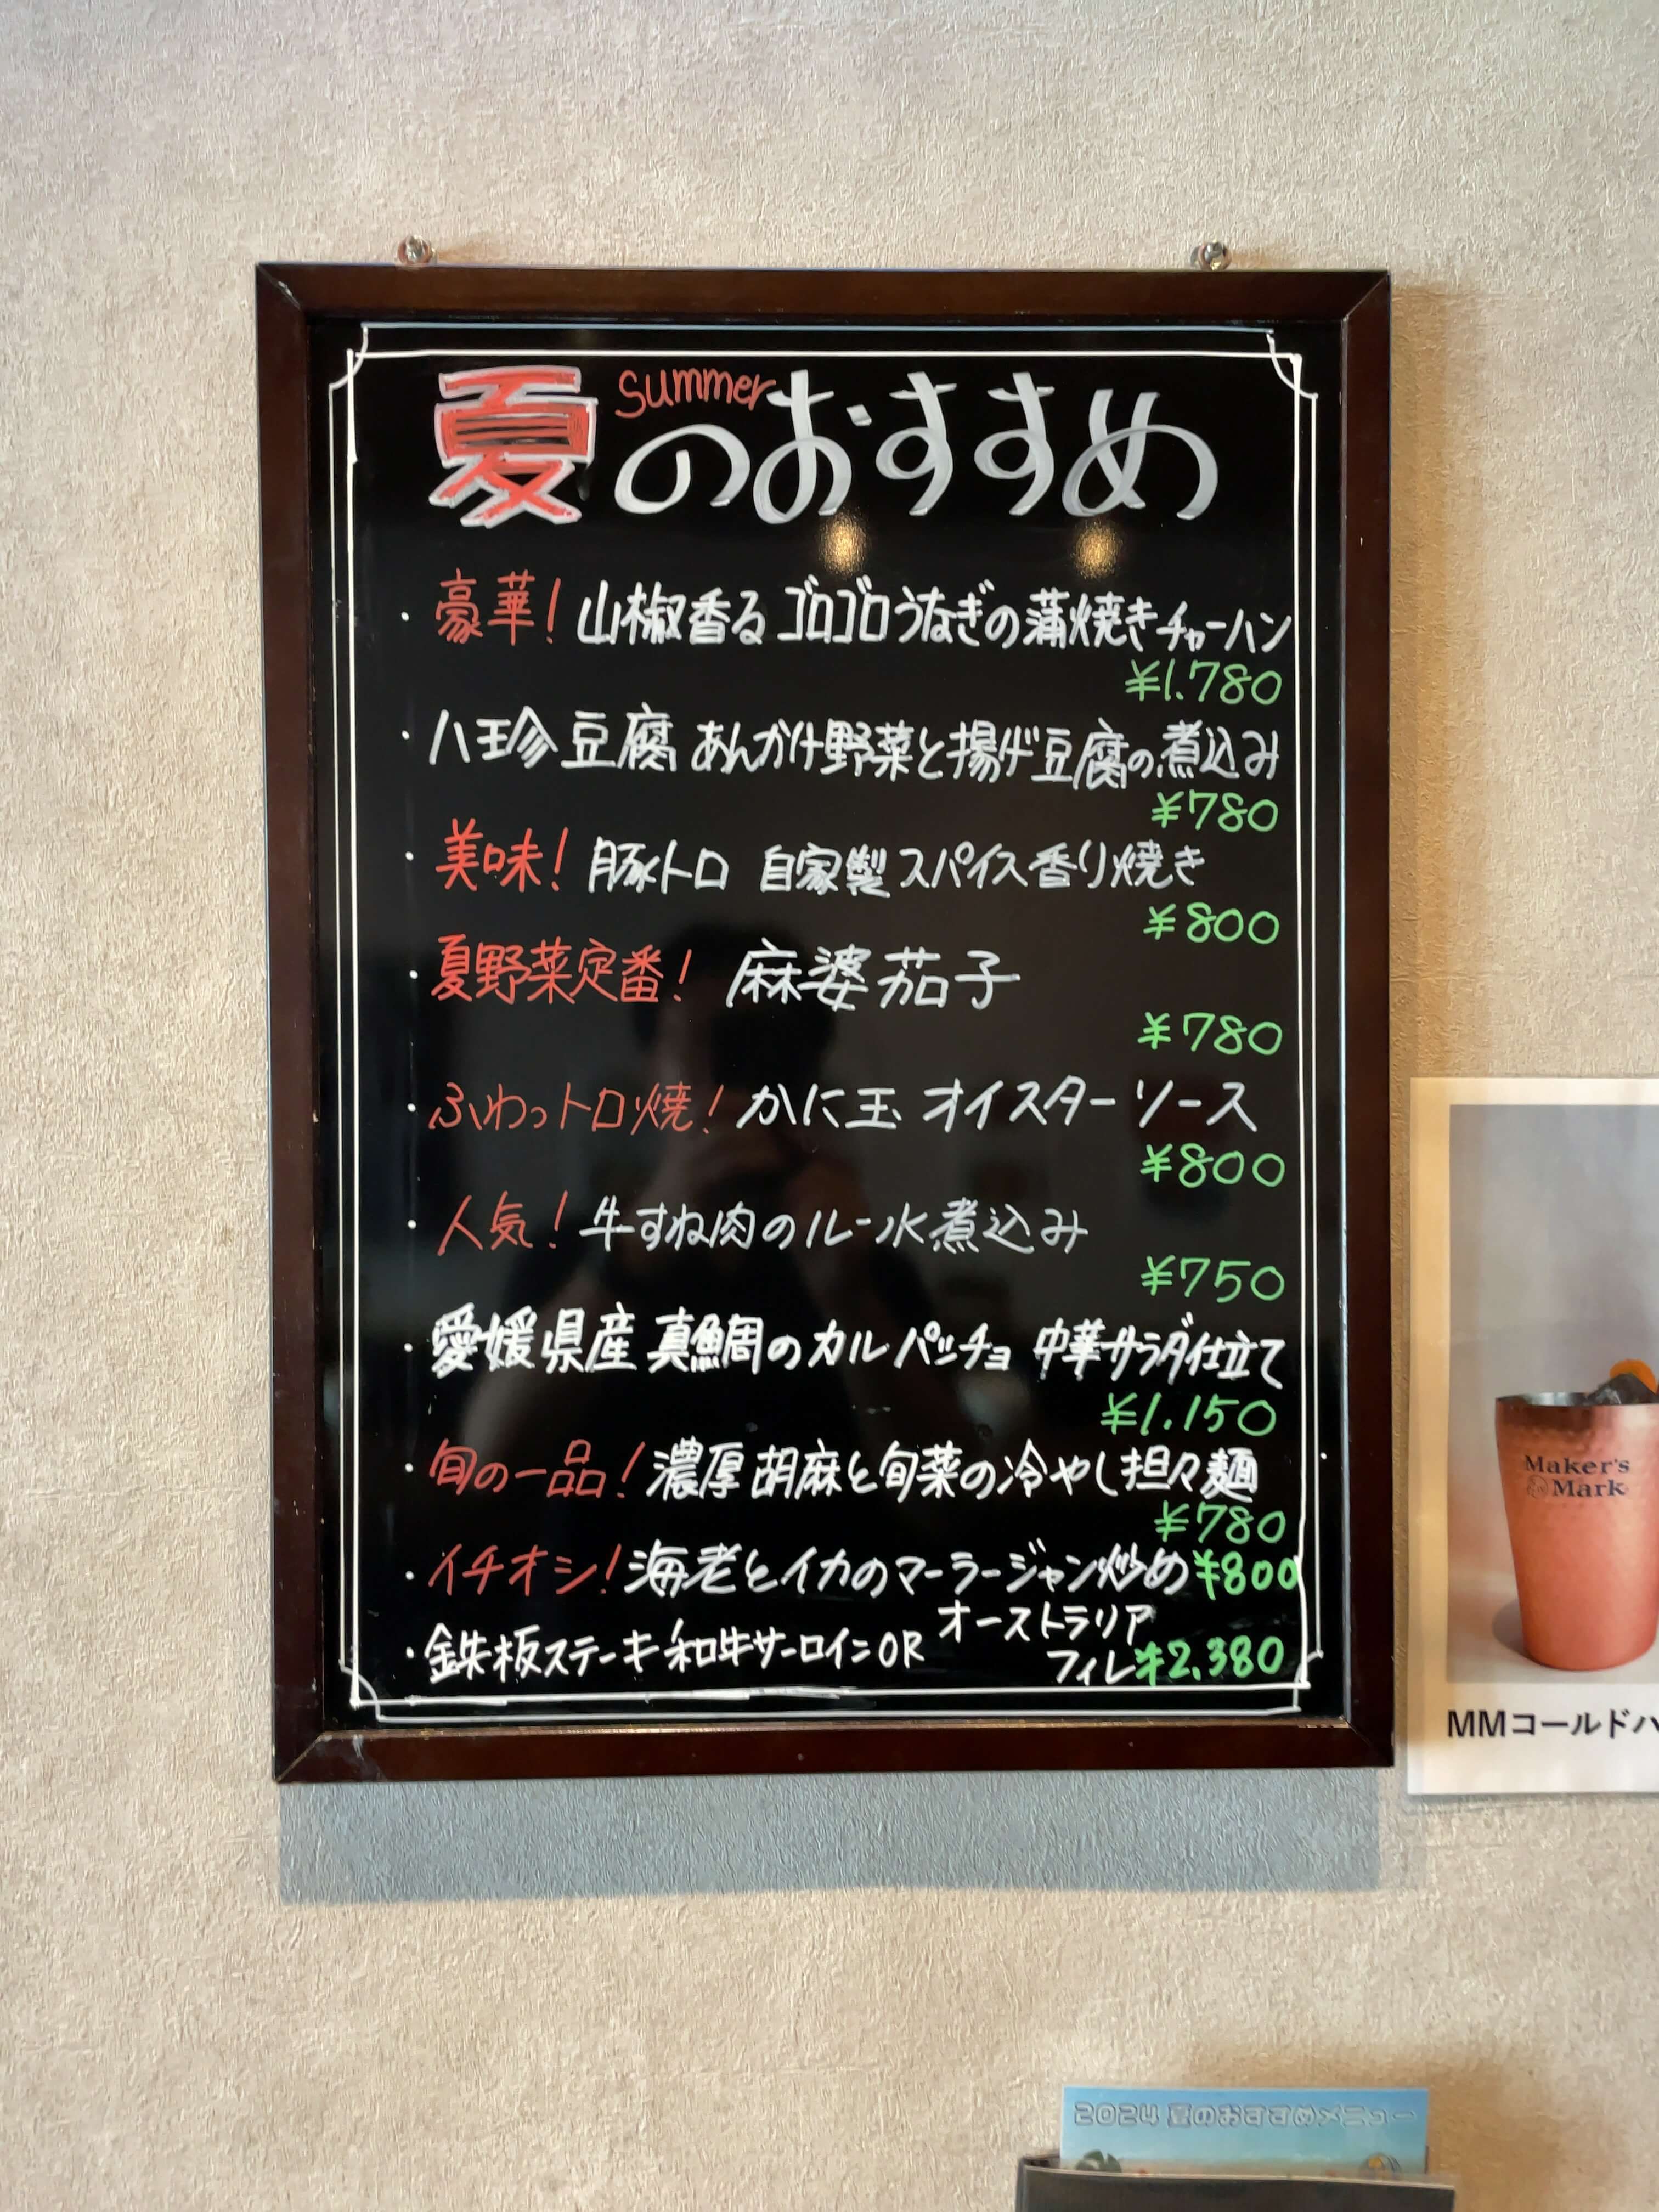 summer
夏のおすすめ
・豪華！山椒香るゴロゴロうなぎの蒲焼きチャーハン
¥1.780
・八珍豆腐 あんかけ野菜と揚げ豆腐の煮込み
¥780
・美味！豚トロ 自家製スパイス香り焼き
¥800
・夏野菜定番！麻婆茄子
¥780
・ふわっトロ焼！かに玉 オイスターソース
¥800
・人気！牛すね肉のルー水煮込み
¥750
・愛媛県産 真鯛のカルパッチョ 中華サラダ仕立て
¥1.150
・旬の一品！濃厚胡麻と旬菜の冷やし担々麺
¥780
・イチオシ！海老とイカのマーラージャン炒め¥800
・鉄板ステーキ和牛サーロインOR オーストラリア
フィレ¥2.380
Maker's
Mark
MMコールドハ
2024 夏のおすすめメニュー